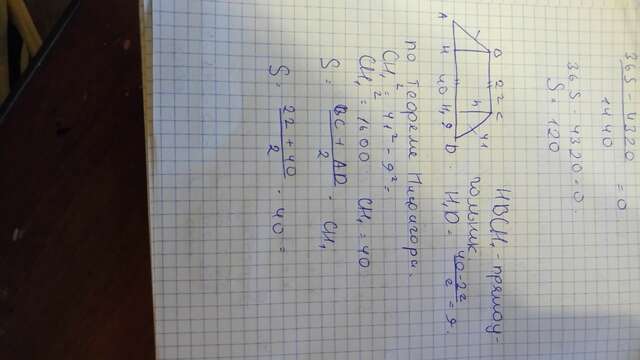 36S - 4320 = 0
1440
36S - 4320 = 0.
S = 120
A H 40 H₁ 9 D
B 22 C
h 41
HBCH₁ - прямоу-
гольник
H₁D = 40-22 / 2 = 9.
по теореме Пифагора.
CH₁² = 41² - 9² =
CH₁² = 1600 CH₁ = 40
S = BC + AD / 2 · CH₁
S = 22 + 40 / 2 · 40 =